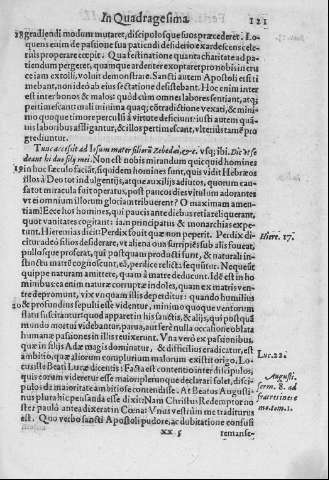 In Quadragesima 121
28 gradiendi modum mutaret, discipolosque suos præcederet. Lo-
quens enim de passione sua patiendi desiderio exardescens cele-
riùs properare cœpit. Qua festinatione quanta charitate ad pa-
tiendum pergeret, quamque ardenter exoptaret pro nobis in cru-
ce iam extolli, voluit demonstrare. Sancti autem Apostoli etsi ti
mebant, non ideo ab eius sectatione desistebant. Hoc enim inter
est inter bonos & malos: quòd cùm omnes labore sentiant, atq;
pertimescant: mali minima quaq; cõtradictione vexati, & mini-
mo quoque timore perculsi à virtute deficiunt: iusti autem quã-
uis laboribus affligantur, & illos pertimescant, vlteriùs tamẽ pro
grediuntur.
Tunc accessit ad Iesum mater filiorũ Zebedæi, &c. vsq; ibi. Dic vt se
deant hi duo filij mei. Non est nobis mirandum quicquid homines
19 in hoc sæculo faciãt, siquidem homines sunt, quis vidit Hebræos
illos à Deo tot indulgentijs, atque auxilijs adiutos, quorum cau-
sa tot miracula fuit operatus, post paucos dies vitulum adorantes
vt ei omnium illorum gloriam tribuerent? O maximam amen-
tiam! Ecce hos homines, qui paucis ante diebus retia reliquerant,
quot vanitates cogitant: iam principatus & monarchias expe-
tunt. Hieremias dicit: Perdix fouit quæ non peperit. Perdix di-
citur adeò filios desiderare, vt aliena oua surripiẽs sub alis foueat,
pullosque proferat, qui postquam producti sunt, & naturali in-
stinctu matrẽ cognoscunt, eã, perdice relicta sequũtur. Neque se
quippe naturam amittere, quam à matre deducunt. Idẽ est in ho
minibus: ea enim naturæ corruptæ indoles, quam ex matris ven-
tre depromunt, vix vnquam illis deperditur: quando humilius
20 & profundius sepulti esse videntur, minimo quoque ventorum
flatu suscitantur: quod apparet in his sanctis, & alijs, qui postquã
mundo mortui videbantur, parua, aut ferè nulla occasione oblata
humanæ passiones in illis reuixerunt. Vna verò ex passionibus,
quæ in filijs Adæ magis dominatur, & difficiliùs eradicatur, est
ambitio, quæ aliorum complurium malorum existit origo. Lo-
cus iste Beati Lucæ dicentis: Facta est contentio inter discipulos,
quis eorum videretur esse maior: plerunque declarari solet, disci-
pulos de maioritate ambitiosè contendisse. At Beatus Augusti-
nus plura hîc pensanda esse dixit: Nam Christus Redemptor no
ster paulò antea dixerat in Cœna: Vnus vestrũm me traditurus
est. Quo verbo sancti Apostoli pudore, ac dubitatione confusi
xx 5 remanse-
Hiere. 17.
Luc. 22.
Augusti.
serm. 8. ad
fratres in ere
mo. tom. 1.